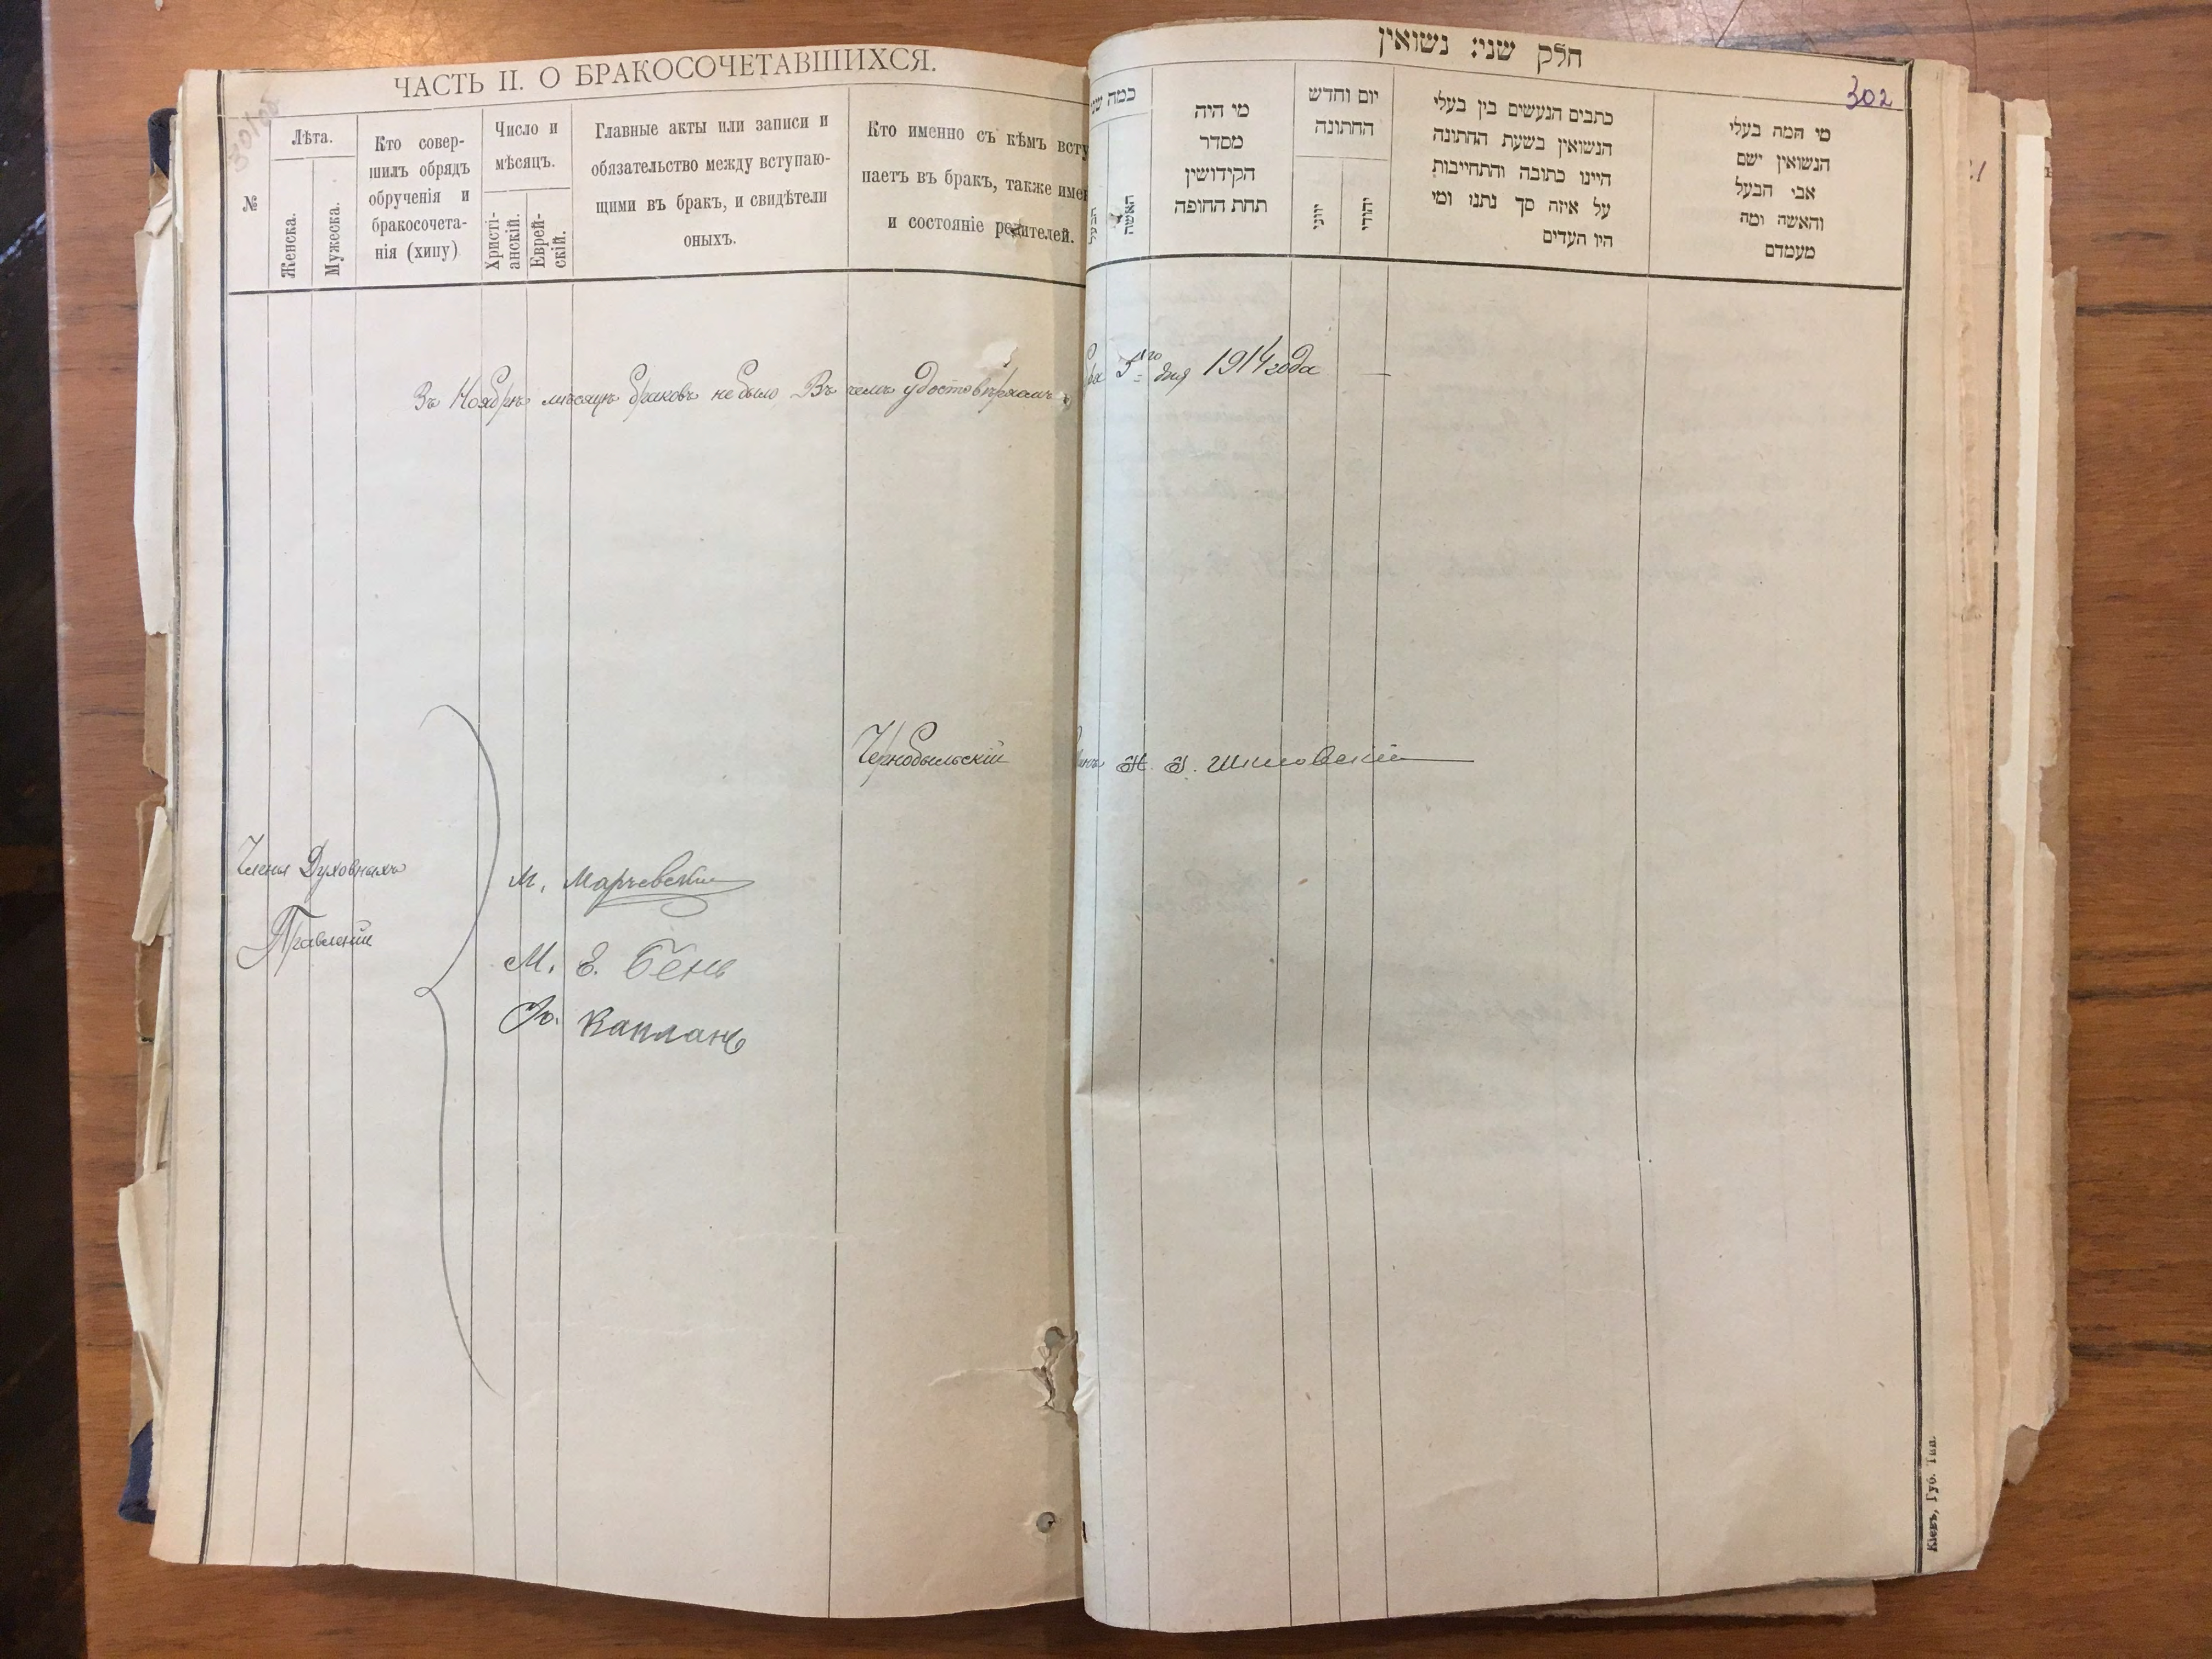 ЧАСТЬ II. О БРАКОСОЧЕТАВШИХСЯ.
№
Лѣта.
Женска.
Мужеска.
Кто совер-
шилъ обрядъ
обрученія и
бракосочета-
нія (хипу)
Число и
мѣсяцъ.
Христі-
анскій.
Еврей-
скій.
Главные акты или записи и
обязательство между вступаю-
щими въ брак, и свидѣтели
оныхъ.
Кто именно съ кѣмъ всту
паетъ въ брак, также имен
и состояніе родителей.
Въ Ноябрѣ мѣсяцѣ браковъ не было Въ чемъ удостовѣряемъ
Чернобыльскій
Члены Духовныхъ
Правленій
М.
М. Е. Бень
Капланъ
חלק שני: נשואין
302
כמה שני
הבעל
האשה
מי היה
מסדר
הקידושין
תחת החופה
יום וחדש
החתונה
יווני
יהודי
כתבים הנעשים בין בעלי
הנשואין בשעת החתונה
היינו כתובה והתחייבות
על איזה סך נתנו ומי
היו העדים
מי המה בעלי
הנשואין ושם
אבי הבעל
והאשה ומה
מעמדם
5го дня 1914 года
Кіевъ, Губ. Тип.